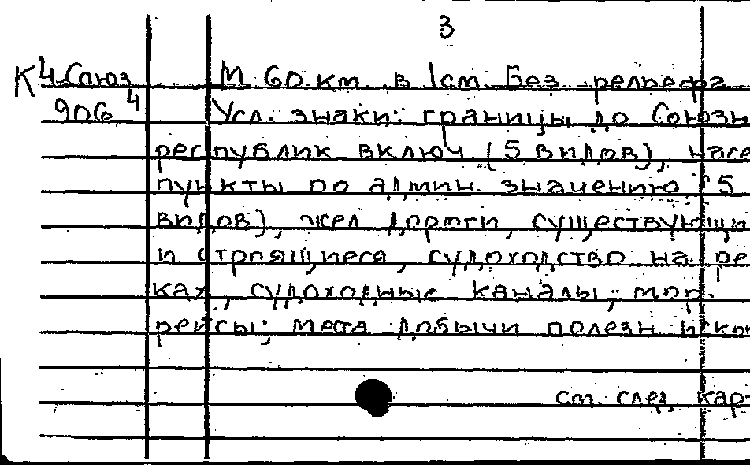 3
К4-Союз М 60 км в 1см. Без рельефа
906 4 Усл. знаки: границы до Союзн
республик включ (5 видов), насе
пункты по админ. значению (5
видов), жел дороги, существующи
и строящиеся, судоходство на ре
ках, судоходные каналы; мор.
рейсы; места добычи полезн. иско
см. след. кар